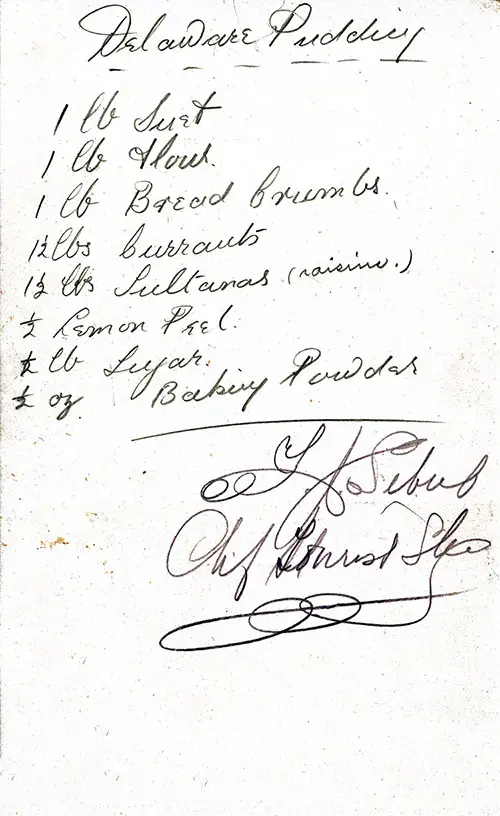 Delaware Pudding
1 lb Suet
1 lb Flour.
1 lb Bread Crumbs.
1½ lbs Currants
1½ lbs Sultanas (raisins.)
½ Lemon Peel.
½ lb Sugar.
½ oz Baking Powder
Chef